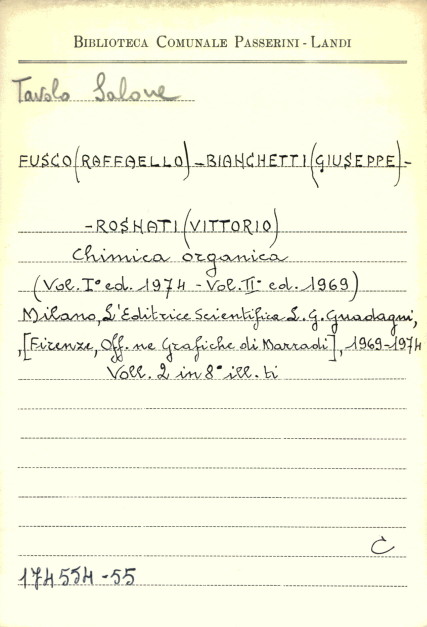 BIBLIOTECA COMUNALE PASSERINI-LANDI
Tavolo Salone
FUSCO (RAFFAELLO) - BIANCHETTI (GIUSEPPE) -
- ROSNATI (VITTORIO)
Chimica organica
(Vol. I° ed. 1974 - Vol. II° ed. 1969)
Milano, L'Editrice Scientifica L. G. Guadagni,
, [Firenze, Off. ne Grafiche di Marradi], 1969-1974
Voll. 2 in 8° ill. ti
C
174554-55